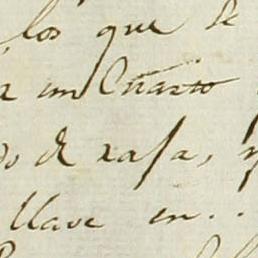 los que se
un Cuarto
do de rasa, y
llave en..